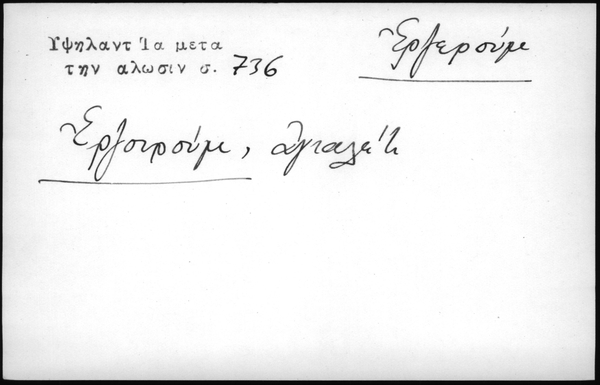 Υψηλαντ Ία μετα
την αλωσιν σ. 736
Ἐρζερούμ
Ἐρζιρούμ, ἀγιαλέτι